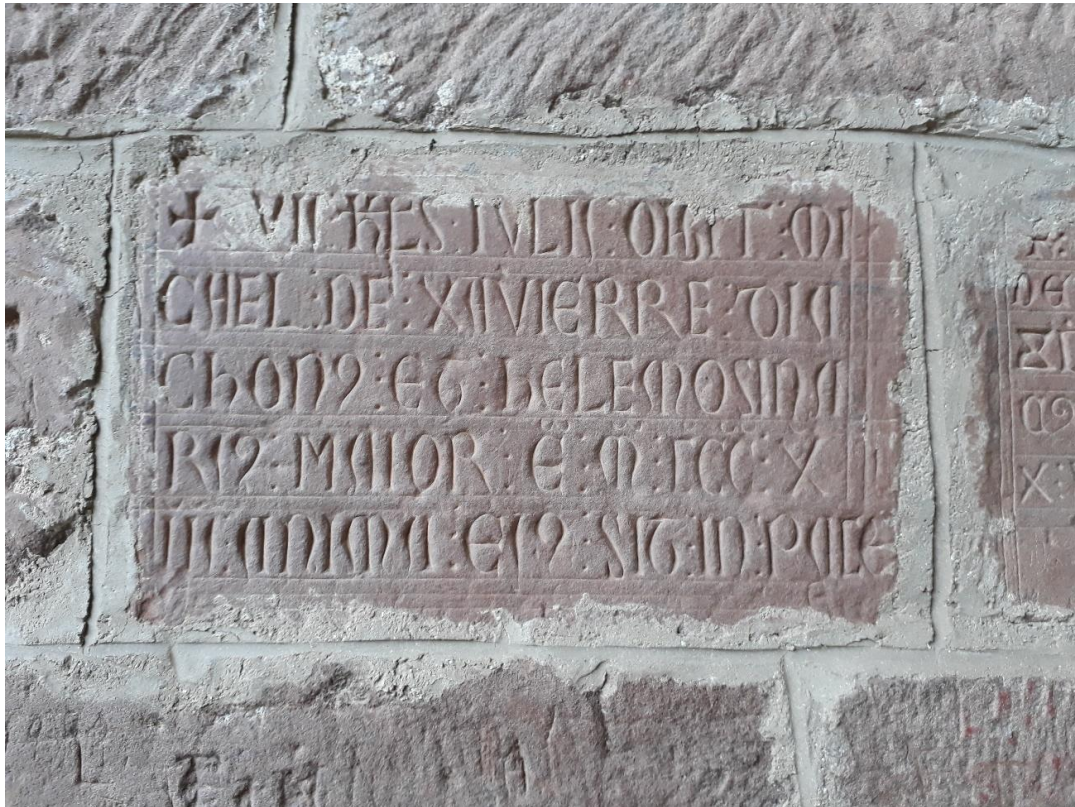 + VII : KLS : IVLII : OBIIT : MI
CHEL : DE : XAVIERRE : DIA
CHON9 : ET : HELEMOSINA
RI9 : MAIOR : E : M : CCC : X
III : ANIMA : EI9 : SIT : IN : PACE
X